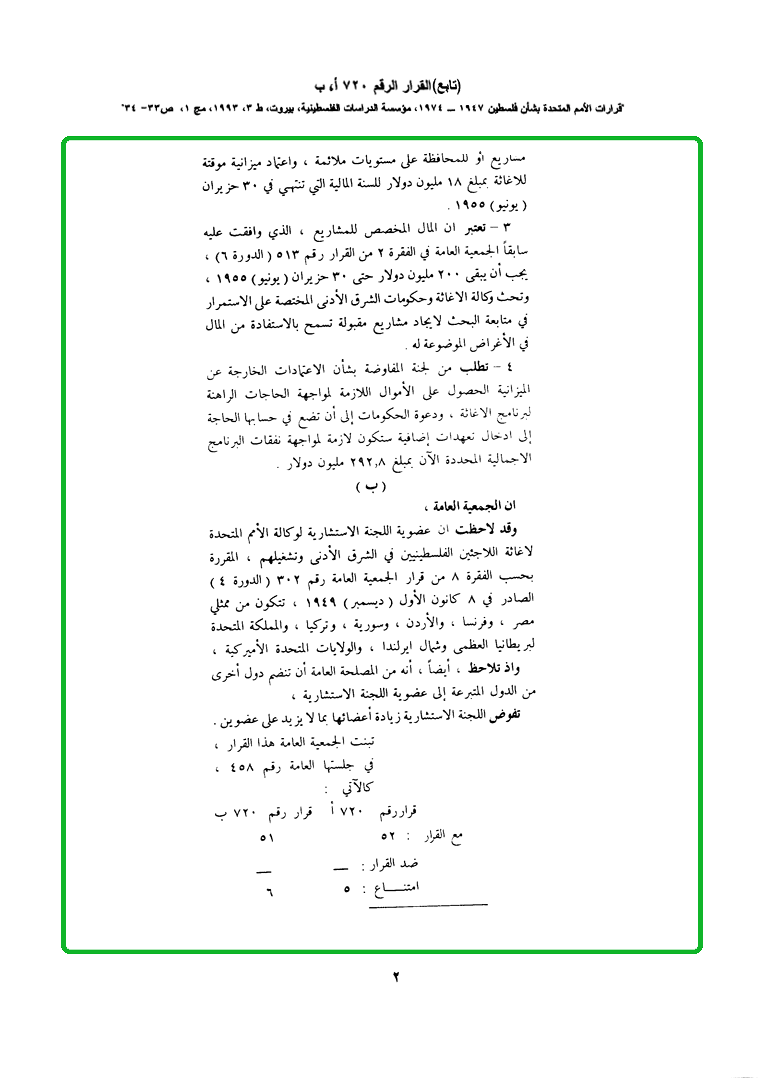 (تابع) القرار الرقم ٧٢٠ أ، ب
"قرارات الأمم المتحدة بشأن فلسطين ١٩٤٧ ــ ١٩٧٤، مؤسسة الدراسات الفلسطينية، بيروت، ط ٣، ١٩٩٣، مج ١، ص٣٣- ٣٤"
مشاريع او للمحافظة على مستويات ملائمة ، واعتماد ميزانية موقتة
للاغاثة بمبلغ ١٨ مليون دولار للسنة المالية التي تنتهي في ٣٠ حزيران
( يونيو ) ١٩٥٥ .
٣ – تعتبر ان المال المخصص للمشاريع ، الذي وافقت عليه
سابقاً الجمعية العامة في الفقرة ٢ من القرار رقم ٥١٣ ( الدورة ٦ ) ،
يجب أن يبقى ٢٠٠ مليون دولار حتى ٣٠ حزيران ( يونيو ) ١٩٥٥ ،
وتحث وكالة الاغاثة وحكومات الشرق الأدنى المختصة على الاستمرار
في متابعة البحث لايجاد مشاريع مقبولة تسمح بالاستفادة من المال
في الأغراض الموضوعة له .
٤ – تطلب من لجنة المفاوضة بشأن الاعتمادات الخارجة عن
الميزانية الحصول على الأموال اللازمة لمواجهة الحاجات الراهنة
لبرنامج الاغاثة ، ودعوة الحكومات إلى أن تضع في حسابها الحاجة
إلى ادخال تعهدات إضافية ستكون لازمة لمواجهة نفقات البرنامج
الاجمالية المحددة الآن بمبلغ ٢٩٢,٨ مليون دولار .
( ب )
ان الجمعية العامة ،
وقد لاحظت ان عضوية اللجنة الاستشارية لوكالة الأمم المتحدة
لاغاثة اللاجئين الفلسطينيين في الشرق الأدنى وتشغيلهم ، المقررة
بحسب الفقرة ٨ من قرار الجمعية العامة رقم ٣٠٢ ( الدورة ٤ )
الصادر في ٨ كانون الأول ( ديسمبر ) ١٩٤٩ ، تتكون من ممثلي
مصر ، وفرنسا ، والأردن ، وسورية ، وتركيا ، والمملكة المتحدة
لبريطانيا العظمى وشمال ايرلندا ، والولايات المتحدة الأميركية ،
واذ تلاحظ ، أيضاً ، أنه من المصلحة العامة أن تنضم دول أخرى
من الدول المتبرعة إلى عضوية اللجنة الاستشارية ،
تفوض اللجنة الاستشارية زيادة أعضائها بما لا يزيد على عضوين .
تبنت الجمعية العامة هذا القرار ،
في جلستها العامة رقم ٤٥٨ ،
كالآتي :
قرار رقم ٧٢٠ أ قرار رقم ٧٢٠ ب
مع القرار : ٥٢ ٥١
ضد القرار : — —
امتنـــاع : ٥ ٦
٢